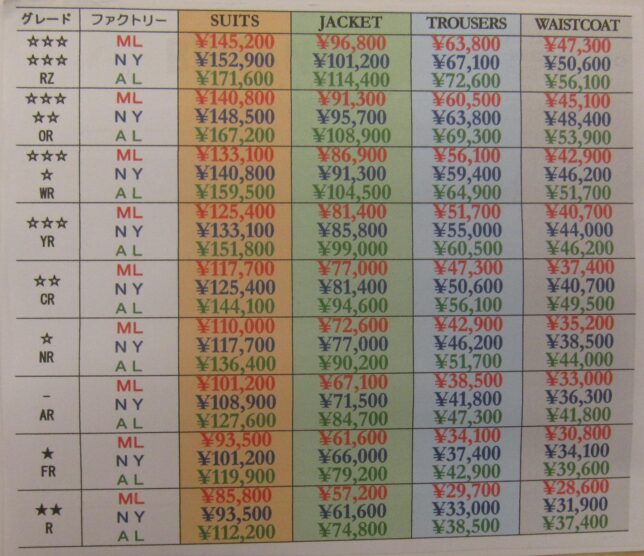 グレード ファクトリー SUITS JACKET TROUSERS WAISTCOAT
☆☆☆ ML ¥145,200 ¥96,800 ¥63,800 ¥47,300
☆☆☆ NY ¥152,900 ¥101,200 ¥67,100 ¥50,600
RZ AL ¥171,600 ¥114,400 ¥72,600 ¥56,100
☆☆☆ ML ¥140,800 ¥91,300 ¥60,500 ¥45,100
☆☆ NY ¥148,500 ¥95,700 ¥63,800 ¥48,400
OR AL ¥167,200 ¥108,900 ¥69,300 ¥53,900
☆☆☆ ML ¥133,100 ¥86,900 ¥56,100 ¥42,900
☆ NY ¥140,800 ¥91,300 ¥59,400 ¥46,200
WR AL ¥159,500 ¥104,500 ¥64,900 ¥51,700
☆☆☆ ML ¥125,400 ¥81,400 ¥51,700 ¥40,700
YR NY ¥133,100 ¥85,800 ¥55,000 ¥44,000
AL ¥151,800 ¥99,000 ¥60,500 ¥46,200
☆☆ ML ¥117,700 ¥77,000 ¥47,300 ¥37,400
CR NY ¥125,400 ¥81,400 ¥50,600 ¥40,700
AL ¥144,100 ¥94,600 ¥56,100 ¥49,500
☆ ML ¥110,000 ¥72,600 ¥42,900 ¥35,200
NR NY ¥117,700 ¥77,000 ¥46,200 ¥38,500
AL ¥136,400 ¥90,200 ¥51,700 ¥44,000
- ML ¥101,200 ¥67,100 ¥38,500 ¥33,000
AR NY ¥108,900 ¥71,500 ¥41,800 ¥36,300
AL ¥127,600 ¥84,700 ¥47,300 ¥41,800
★ ML ¥93,500 ¥61,600 ¥34,100 ¥30,800
FR NY ¥101,200 ¥66,000 ¥37,400 ¥34,100
AL ¥119,900 ¥79,200 ¥42,900 ¥39,600
★★ ML ¥85,800 ¥57,200 ¥29,700 ¥28,600
R NY ¥93,500 ¥61,600 ¥33,000 ¥31,900
AL ¥112,200 ¥74,800 ¥38,500 ¥37,400